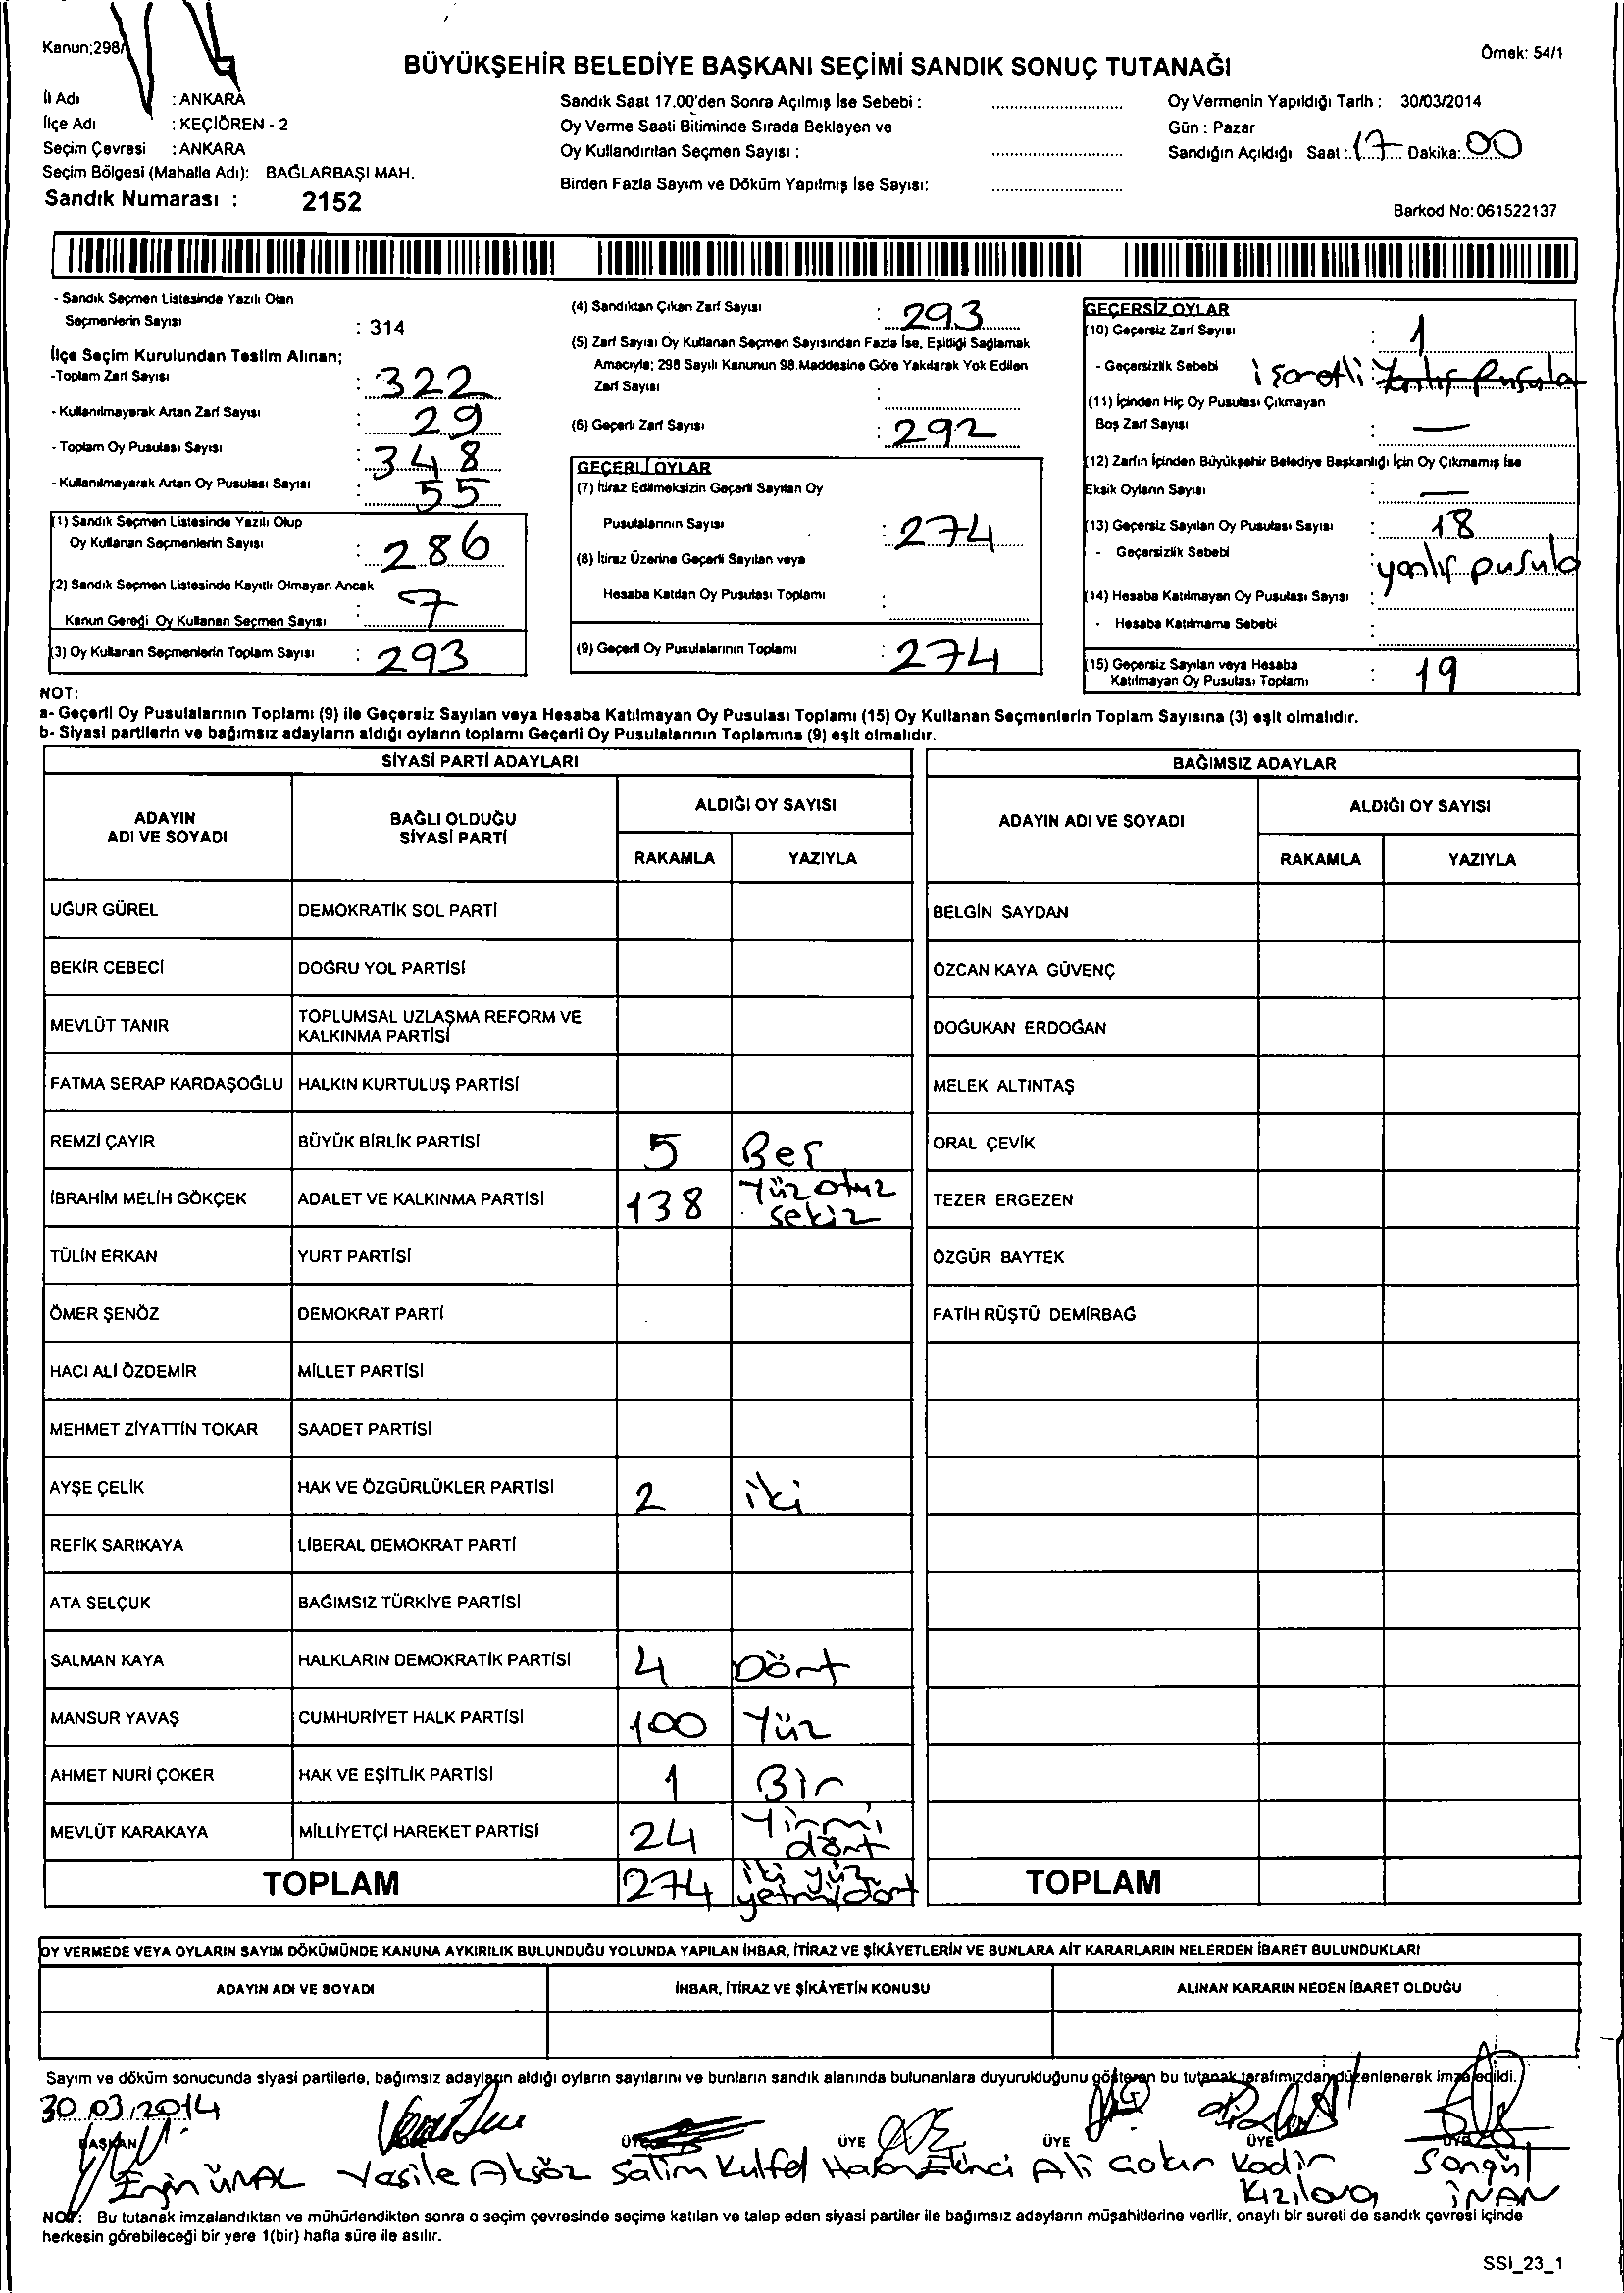 Kanun;298/
Örnek: 54/1
BÜYÜKŞEHİR BELEDİYE BAŞKANI SEÇİMİ SANDIK SONUÇ TUTANAĞI
İl Adı : ANKARA
İlçe Adı : KEÇİÖREN - 2
Seçim Çevresi : ANKARA
Seçim Bölgesi (Mahalle Adı): BAĞLARBAŞI MAH.
Sandık Numarası : 2152
Sandık Saat 17.00'den Sonra Açılmış İse Sebebi :
Oy Verme Saati Bitiminde Sırada Bekleyen ve
Oy Kullandırılan Seçmen Sayısı :
Birden Fazla Sayım ve Döküm Yapılmış İse Sayısı:
Oy Vermenin Yapıldığı Tarih : 30/03/2014
Gün : Pazar
Sandığın Açıldığı Saat : 17 Dakika: 00
Barkod No: 061522137
- Sandık Seçmen Listesinde Yazılı Olan
Seçmenlerin Sayısı : 314
İlçe Seçim Kurulundan Teslim Alınan;
-Toplam Zarf Sayısı : 322
- Kullanılmayarak Artan Zarf Sayısı : 29
- Toplam Oy Pusulası Sayısı : 348
- Kullanılmayarak Artan Oy Pusulası Sayısı : 55
(1) Sandık Seçmen Listesinde Yazılı Olup
Oy Kullanan Seçmenlerin Sayısı : 286
(2) Sandık Seçmen Listesinde Kayıtlı Olmayan Ancak
Kanun Gereği Oy Kullanan Seçmen Sayısı : 7
(3) Oy Kullanan Seçmenlerin Toplam Sayısı : 293
(4) Sandıktan Çıkan Zarf Sayısı : 293
(5) Zarf Sayısı Oy Kullanan Seçmen Sayısından Fazla İse, Eşitliği Sağlamak
Amacıyla; 298 Sayılı Kanunun 98.Maddesine Göre Yakılarak Yok Edilen
Zarf Sayısı :
(6) Geçerli Zarf Sayısı : 292
GEÇERLİ OYLAR
(7) İtiraz Edilmeksizin Geçerli Sayılan Oy
Pusulalarının Sayısı : 274
(8) İtiraz Üzerine Geçerli Sayılan veya
Hesaba Katılan Oy Pusulası Toplamı :
(9) Geçerli Oy Pusulalarının Toplamı : 274
GEÇERSİZ OYLAR
(10) Geçersiz Zarf Sayısı : 1
- Geçersizlik Sebebi : işaretli yanlış pusula
(11) İçinden Hiç Oy Pusulası Çıkmayan
Boş Zarf Sayısı : —
(12) Zarfın İçinden Büyükşehir Belediye Başkanlığı İçin Oy Çıkmamış İse
Eksik Oyların Sayısı : —
(13) Geçersiz Sayılan Oy Pusulası Sayısı : 18
- Geçersizlik Sebebi : yanlış pusula
(14) Hesaba Katılmayan Oy Pusulası Sayısı :
- Hesaba Katılmama Sebebi :
(15) Geçersiz Sayılan veya Hesaba
Katılmayan Oy Pusulası Toplamı : 19
NOT:
a- Geçerli Oy Pusulalarının Toplamı (9) ile Geçersiz Sayılan veya Hesaba Katılmayan Oy Pusulası Toplamı (15) Oy Kullanan Seçmenlerin Toplam Sayısına (3) eşit olmalıdır.
b- Siyasi partilerin ve bağımsız adayların aldığı oyların toplamı Geçerli Oy Pusulalarının Toplamına (9) eşit olmalıdır.
SİYASİ PARTİ ADAYLARI
ADAYIN ADI VE SOYADI
BAĞLI OLDUĞU SİYASİ PARTİ
ALDIĞI OY SAYISI
RAKAMLA YAZIYLA
UĞUR GÜREL DEMOKRATİK SOL PARTİ
BEKİR CEBECİ DOĞRU YOL PARTİSİ
MEVLÜT TANIR TOPLUMSAL UZLAŞMA REFORM VE
KALKINMA PARTİSİ
FATMA SERAP KARDAŞOĞLU HALKIN KURTULUŞ PARTİSİ
REMZİ ÇAYIR BÜYÜK BİRLİK PARTİSİ 5 Beş
İBRAHİM MELİH GÖKÇEK ADALET VE KALKINMA PARTİSİ 138 Yüz otuz
sekiz
TÜLİN ERKAN YURT PARTİSİ
ÖMER ŞENÖZ DEMOKRAT PARTİ
HACI ALİ ÖZDEMİR MİLLET PARTİSİ
MEHMET ZİYATTİN TOKAR SAADET PARTİSİ
AYŞE ÇELİK HAK VE ÖZGÜRLÜKLER PARTİSİ 2 iki
REFİK SARIKAYA LİBERAL DEMOKRAT PARTİ
ATA SELÇUK BAĞIMSIZ TÜRKİYE PARTİSİ
SALMAN KAYA HALKLARIN DEMOKRATİK PARTİSİ 4 Dört
MANSUR YAVAŞ CUMHURİYET HALK PARTİSİ 100 Yüz
AHMET NURİ ÇOKER HAK VE EŞİTLİK PARTİSİ 1 Bir
MEVLÜT KARAKAYA MİLLİYETÇİ HAREKET PARTİSİ 24 Yirmi
dört
TOPLAM 274 iki yüz
yetmişdört
BAĞIMSIZ ADAYLAR
ADAYIN ADI VE SOYADI
ALDIĞI OY SAYISI
RAKAMLA YAZIYLA
BELGİN SAYDAN
ÖZCAN KAYA GÜVENÇ
DOĞUKAN ERDOĞAN
MELEK ALTINTAŞ
ORAL ÇEVİK
TEZER ERGEZEN
ÖZGÜR BAYTEK
FATİH RÜŞTÜ DEMİRBAĞ
TOPLAM
OY VERMEDE VEYA OYLARIN SAYIM DÖKÜMÜNDE KANUNA AYKIRILIK BULUNDUĞU YOLUNDA YAPILAN İHBAR, İTİRAZ VE ŞİKÂYETLERİN VE BUNLARA AİT KARARLARIN NELERDEN İBARET BULUNDUKLARI
ADAYIN ADI VE SOYADI İHBAR, İTİRAZ VE ŞİKÂYETİN KONUSU ALINAN KARARIN NEDEN İBARET OLDUĞU
Sayım ve döküm sonucunda siyasi partilerle, bağımsız adayların aldığı oyların sayılarını ve bunların sandık alanında bulunanlara duyurulduğunu gösteren bu tutanak tarafımızdan düzenlenerek imza edildi.
30.03.2014
BAŞKAN ÜYE ÜYE ÜYE ÜYE ÜYE
Engin ÜNAL Vesile Aksöz Salim Kulfel Hasan Ekinci Ali Çoban Kadir Songül
Kızılova İNAN
NOT: Bu tutanak imzalandıktan ve mühürlendikten sonra o seçim çevresinde seçime katılan ve talep eden siyasi partiler ile bağımsız adayların müşahitlerine verilir, onaylı bir sureti de sandık çevresi içinde
herkesin görebileceği bir yere 1(bir) hafta süre ile asılır.
SSI_23_1